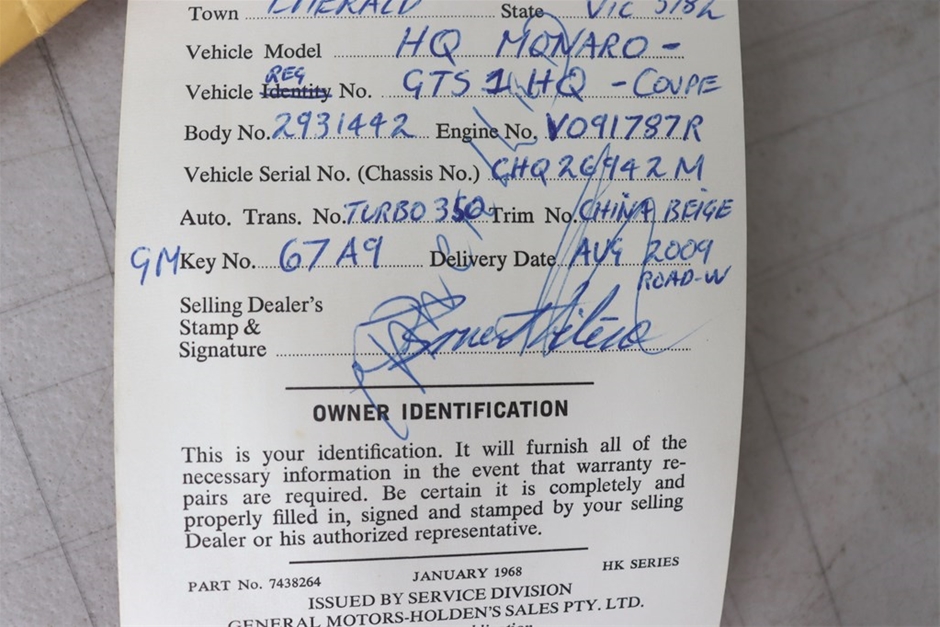 Town EMERALD State VIC 3782
Vehicle Model HQ MONARO -
REG
Vehicle Identity No. GTS 1 HQ - COUPE
Body No. 2931442 Engine No. V091787R
Vehicle Serial No. (Chassis No.) CHQ26942M
Auto. Trans. No. TURBO 350 Trim No. CHINA BEIGE
GM Key No. 67A9 Delivery Date AUG 2009
ROAD-W
Selling Dealer's
Stamp &
Signature
OWNER IDENTIFICATION
This is your identification. It will furnish all of the
necessary information in the event that warranty re-
pairs are required. Be certain it is completely and
properly filled in, signed and stamped by your selling
Dealer or his authorized representative.
PART No. 7438264 JANUARY 1968 HK SERIES
ISSUED BY SERVICE DIVISION
GENERAL MOTORS-HOLDEN'S SALES PTY. LTD.